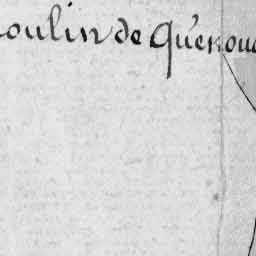 oulin de Querou